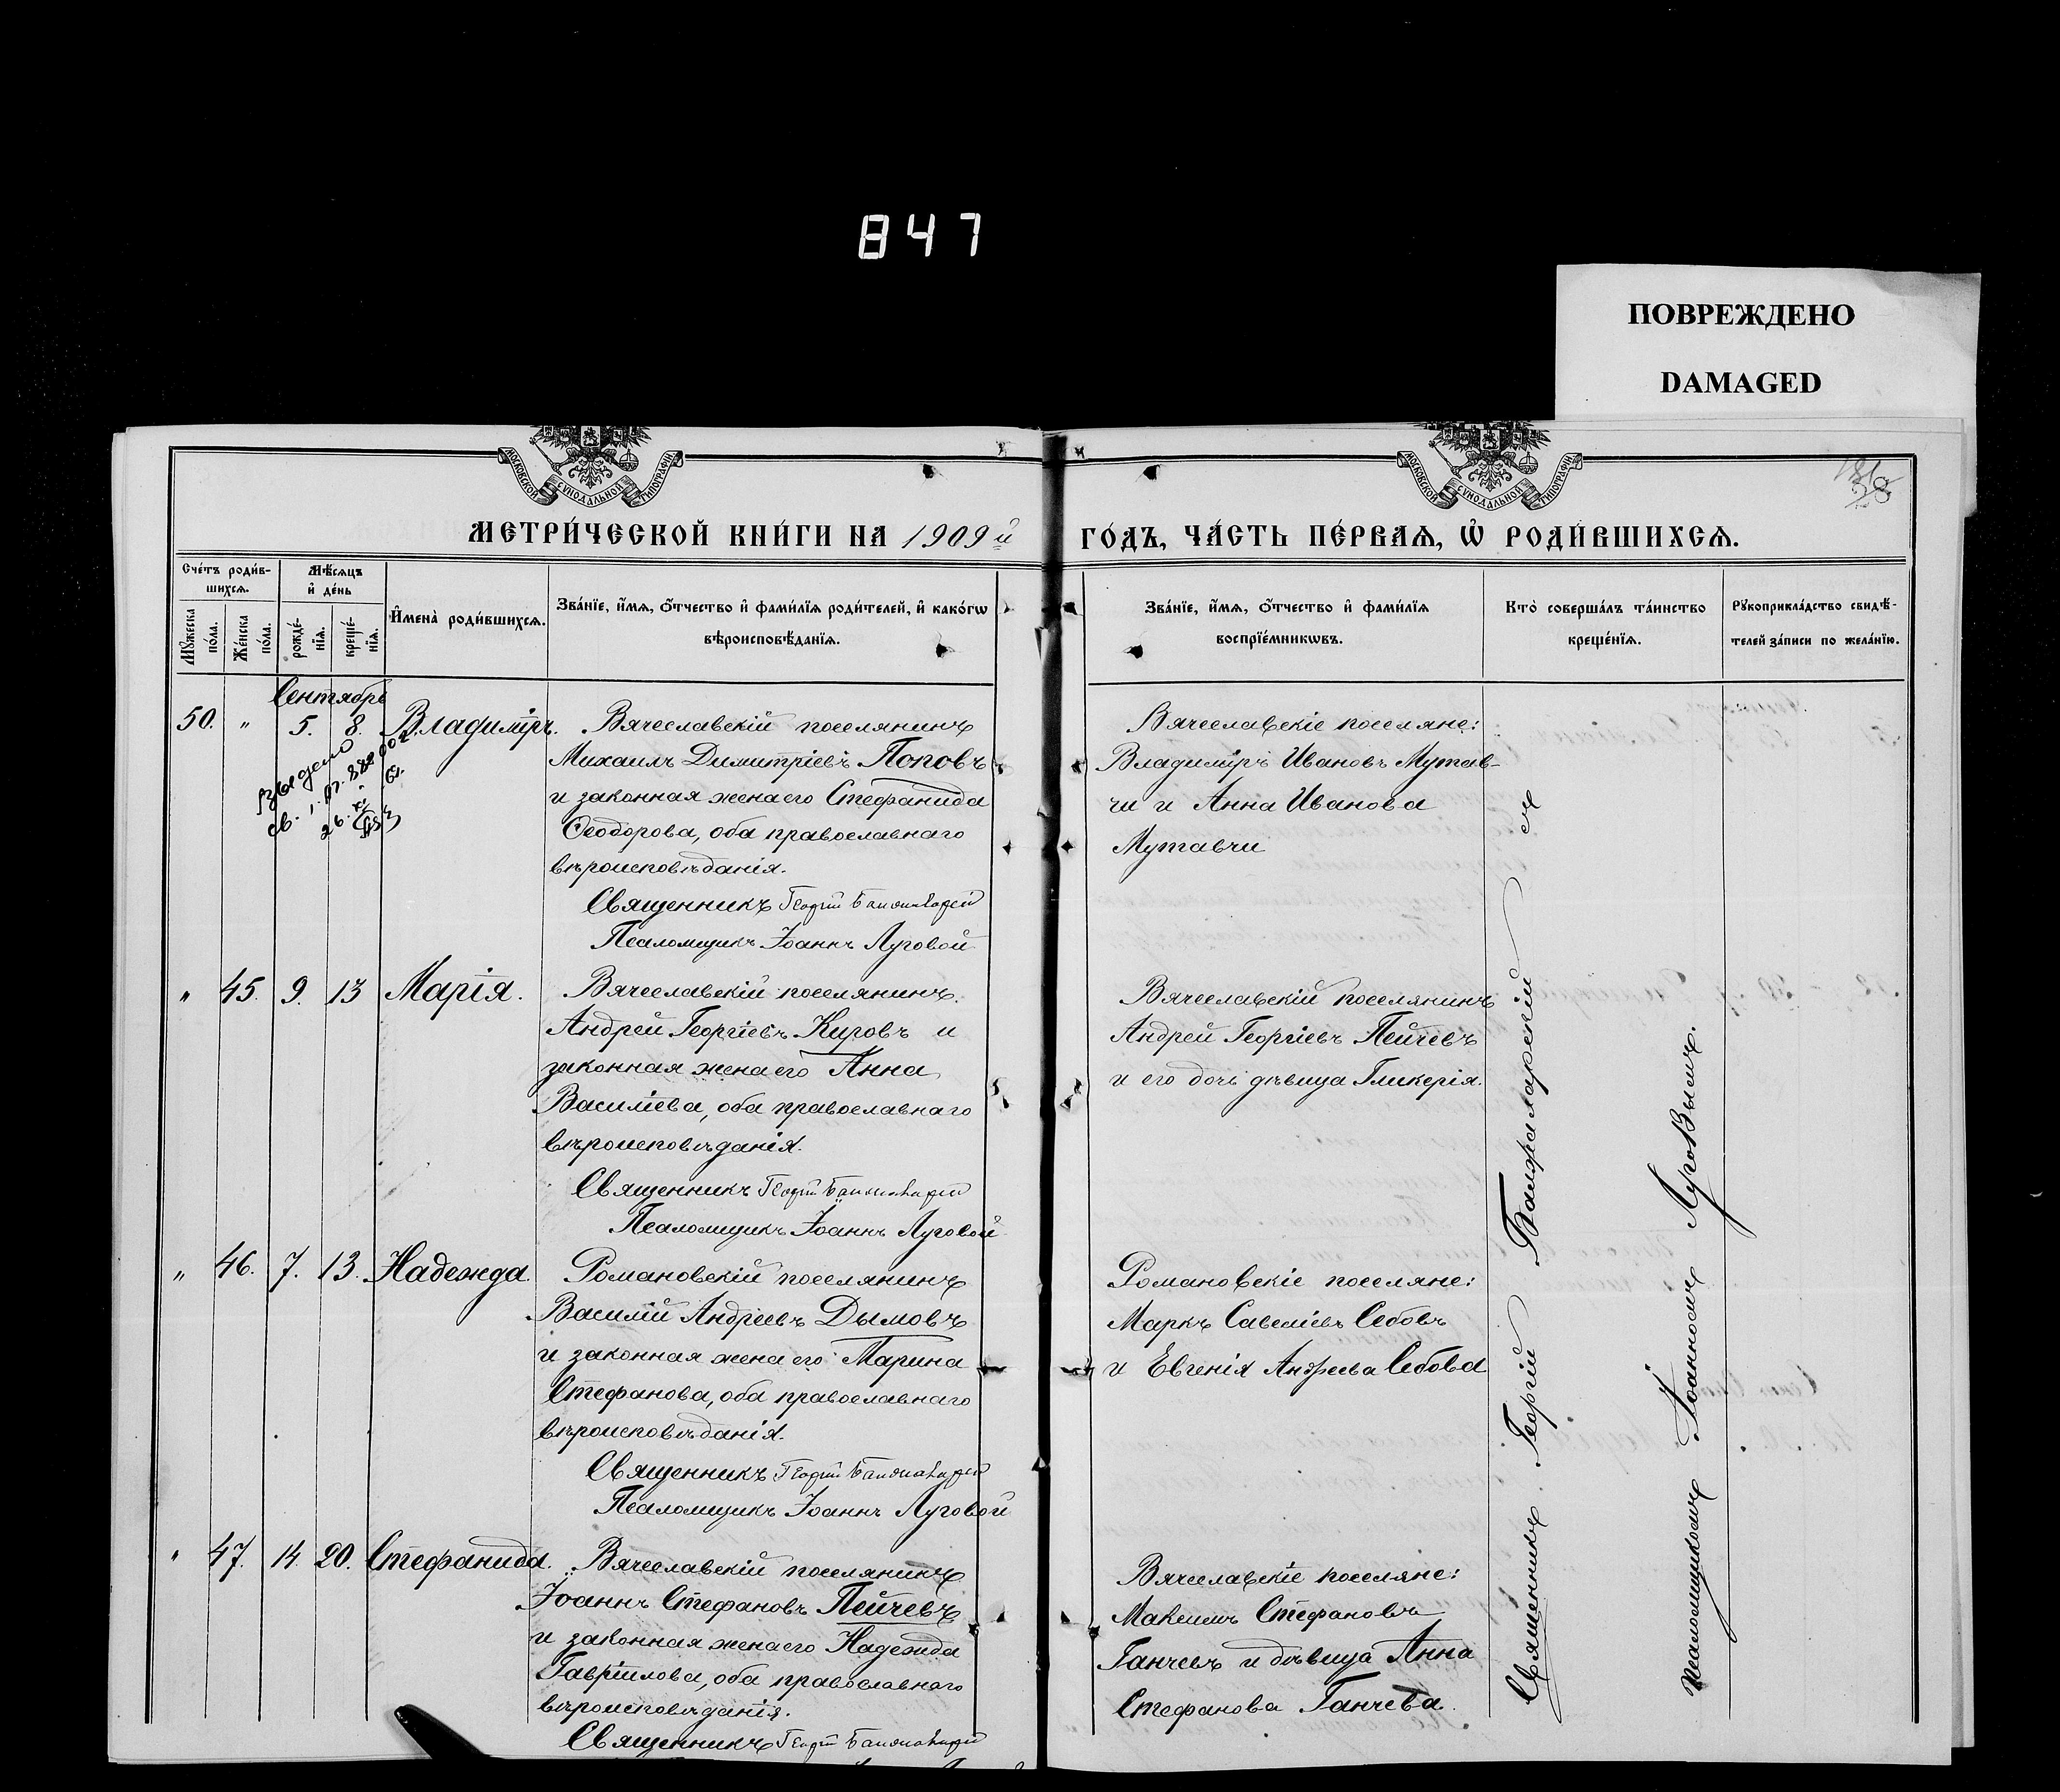 847
ПОВРЕЖДЕНО
DAMAGED
МОСКОВСКОЙ СУНОДАЛЬНОЙ ТИПОГРАФІИ
МОСКОВСКОЙ СУНОДАЛЬНОЙ ТИПОГРАФІИ
28
МЕТРИ́ЧЕСКОЙ КНИ́ГИ НА 1909й
ГО́ДЪ, ЧА́СТЬ ПЕ́РВАѦ, Ѽ РОДИ́ВШИХСѦ.
Сче́тъ роди́в-
шихсѧ.
Мꙋжеска по́ла.
Же́нска по́ла.
Мѣ́сѧцъ
и҆ де́нь
рожде́-
нїѧ.
креще́-
нїѧ.
И҆мена̀ роди́вшихсѧ.
Зва́нїе, и҆́мѧ, ѻ҆́тчество и҆ фами́лїѧ роди́телей, и҆ како́гѡ
вѣроисповѣ́данїѧ.
Зва́нїе, и҆́мѧ, ѻ҆́тчество и҆ фами́лїѧ
воспрїе́мникѡвъ.
Кто̀ соверша́лъ та́инство
креще́нїѧ.
Рꙋкоприкла́дство свидѣ́-
телей за́писи по жела́нїю.
Сентябрь
50. " 5. 8. Владиміръ. Вячеславскій поселянинъ
Михаилъ Димитріевъ Поповъ
и законная жена его Стефанида
Ѳеодорова, оба православнаго
вѣроисповѣданія.
Священникъ Георгій
Псаломщикъ Іоаннъ Луговой
Вячеславскіе поселяне:
Владиміръ Ивановъ Мутав-
чи и Анна Иванова
Мутавчи
" 45. 9. 13 Марія. Вячеславскій поселянинъ
Андрей Георгіевъ Кировъ и
законная жена его Анна
Василіева, оба православнаго
вѣроисповѣданія.
Священникъ Георгій
Псаломщикъ Іоаннъ Луговой
Вячеславскій поселянинъ
Андрей Георгіевъ Пейчевъ
и его дочь дѣвица Гликерія.
" 46. 7. 13. Надежда. Романовскій поселянинъ
Василій Андреевъ Дымовъ
и законная жена его Марина
Стефанова, оба православнаго
вѣроисповѣданія.
Священникъ Георгій
Псаломщикъ Іоаннъ Луговой
Романовскіе поселяне:
Маркъ Савеліевъ Себовъ
и Евгенія Андреева Себова
" 47. 14. 20. Стефанида. Вячеславскій поселянинъ
Іоаннъ Стефановъ Пейчевъ
и законная жена его Надежда
Гавріилова, оба православнаго
вѣроисповѣданія.
Священникъ Георгій
Вячеславскіе поселяне:
Максимъ Стефановъ
Ганчевъ и дѣвица Анна
Стефанова Ганчева.
Священникъ Георгій съ
Псаломщикомъ Іоанномъ Луговымъ.